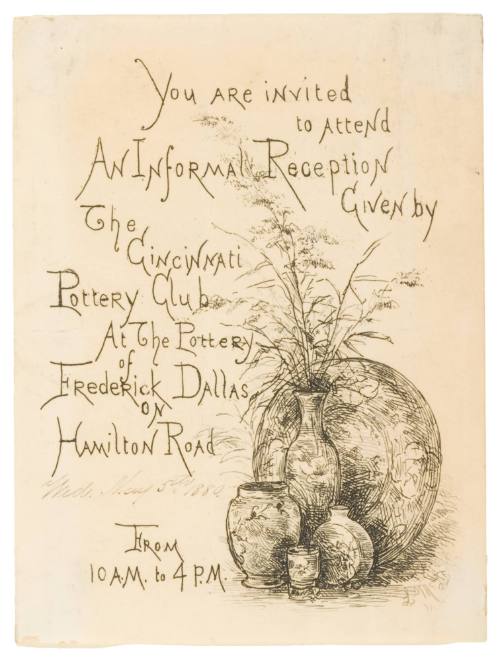 You are invited
to attend
An Informal Reception
Given by
The
Cincinnati
Pottery Club
At The Pottery
of
Frederick Dallas
on
Hamilton Road
Wed. May 5th 1880
From
10 A.M. to 4 P.M.